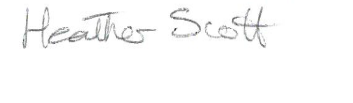 Heather Scott